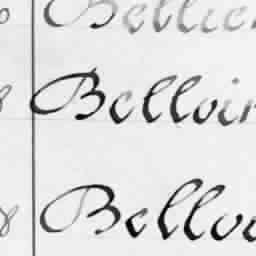 Bellier
8 Belloir
8 Bellou